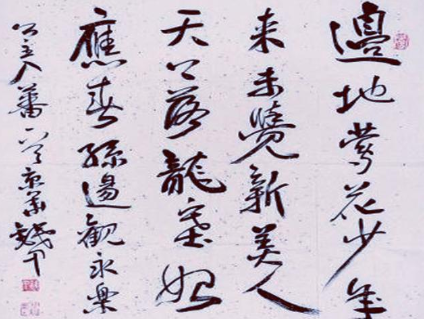 邊地鶯花少年
来未覺新美人
天上落龍塞始
應春孫逖觀永樂
公主入蕃